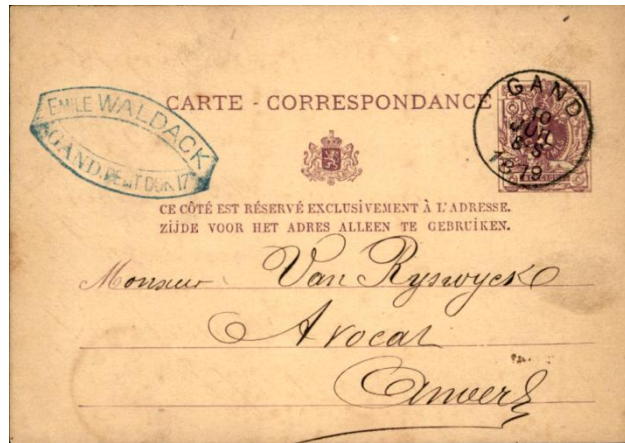 EMILE WALDACK
GAND.
CARTE - CORRESPONDANCE
GAND
10
8-S
1879
CE CÔTÉ EST RÉSERVÉ EXCLUSIVEMENT À L'ADRESSE.
ZIJDE VOOR HET ADRES ALLEEN TE GEBRUIKEN.
Monsieur Van Ryswyck
Avocat
Anvers